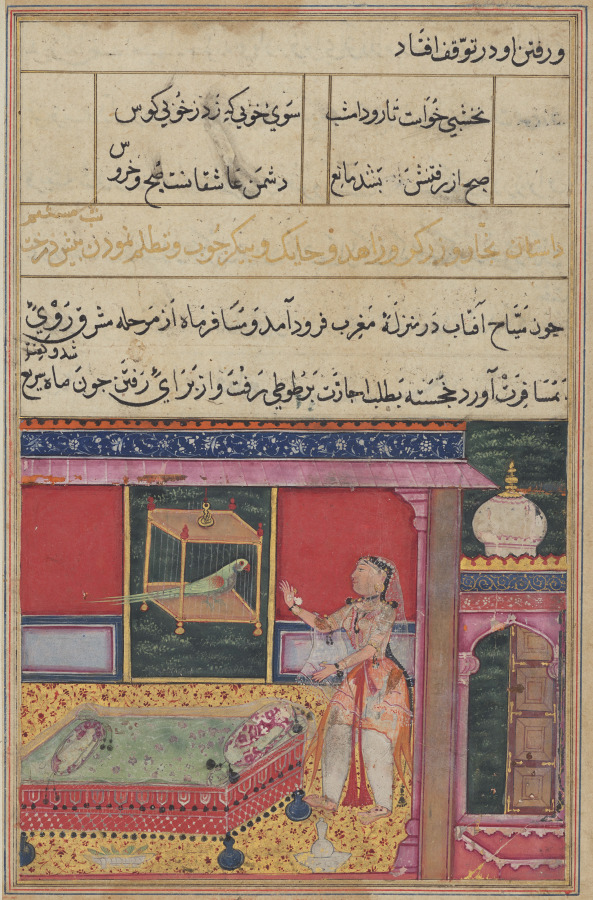 و رفتن او در توقف افتاد
نخشبی خواست تا رود امشب سوی خوبی که زد ز خوبی کوس
صبح از رفتنش بشد مانع دشمن عاشقانست صبح و خروس
داستان نجار و زرگر و زاهد و حایک و پیکر چوب و تظلم نمودن پیش درخت
شب ششم
چون سیاح آفتاب در منزلهٔ مغرب فرود آمد و مسافر ماه از مرحله مشرق روی
بمسافرت آورد خجسته بطلب اجازت بر طوطی رفت و از برای رفتن چون ماه سریع